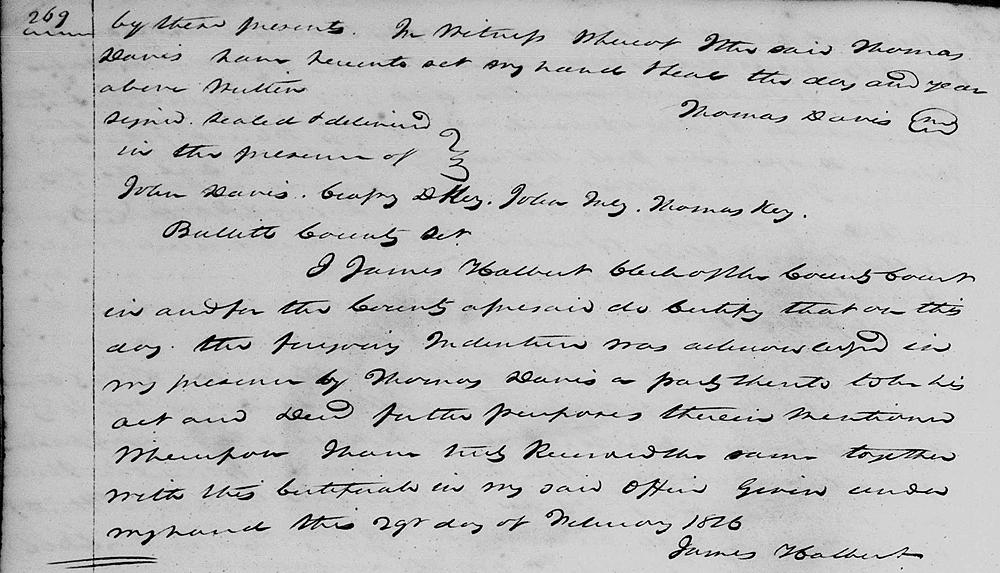 269
by these presents. In Witness Whereof I the said Thomas
Davis have hereunto set my hand & seal this day and year
above written
Thomas Davis
signed. sealed & delivered
in the presence of
John Davis. Key. John Key. Thomas Key.
Bullitt County Sct.
I James Halbert Clerk of the County Court
in and for the County aforesaid do Certify that on this
day. the foregoing Indenture was acknowledged in
my presence by Thomas Davis a party thereto to be his
act and Deed for the purposes therein mentioned
Whereupon I have truly Recorded the same together
with this Certificate in my said Office Given under
my hand this day of February 1816
James Halbert